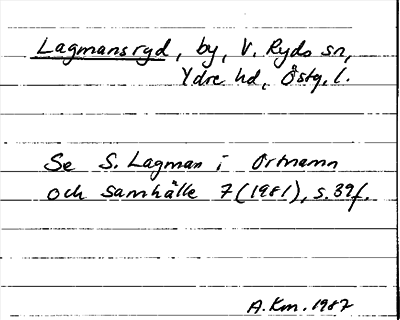 Lagmansryd, by, V. Ryds sn,
Ydre hd, Östg. l.
Se S. Lagman i Ortnamn
och samhälle 7 (1981), s. 39f.
A. Km. 1987